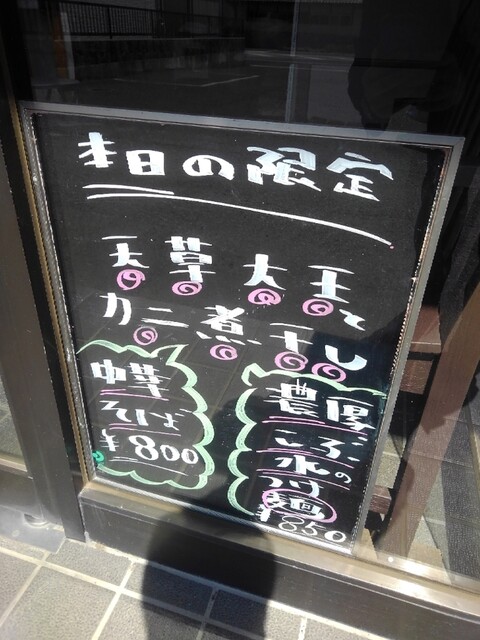 本日の限定
天草大王と
カニ煮干し
中華
そば
¥800
濃厚
こんぶ
水の
つけ麺
¥850